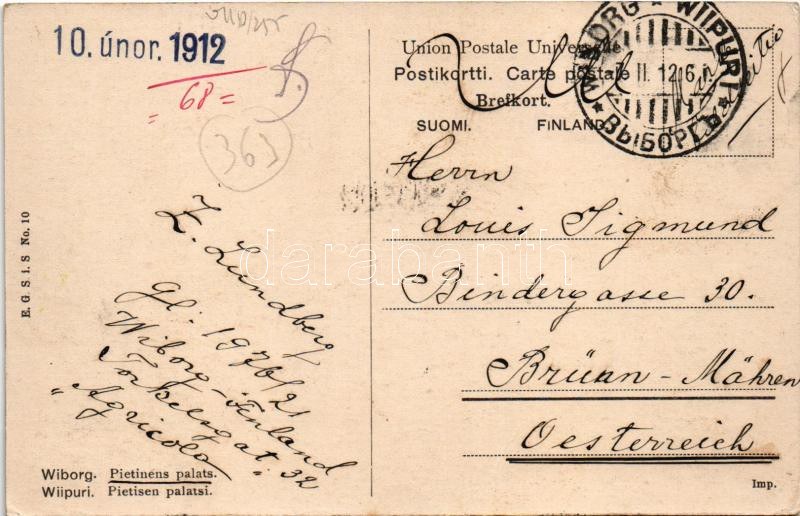 10. únor. 1912
= 68 =
363
Union Postale Universelle
Postikortti. Carte postale
Brefkort.
SUOMI. FINLAND.
WIBORG * WIIPURI
II. 12 6
* ВЫБОРГЪ *
Herrn
Louis Sigmund
Bindergasse 30.
Brüun - Mähren
Oesterreich
E. Lundberg
gl. 1976/21
Wiborg - Finland
Torkelsgat. 32
"Agricola"
E. G. S i. S No. 10
Wiborg. Pietinens palats.
Wiipuri. Pietisen palatsi.
Imp.
darabanth